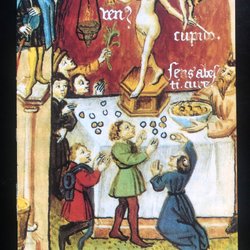 ven?
cupido.
sensabes
ti cure